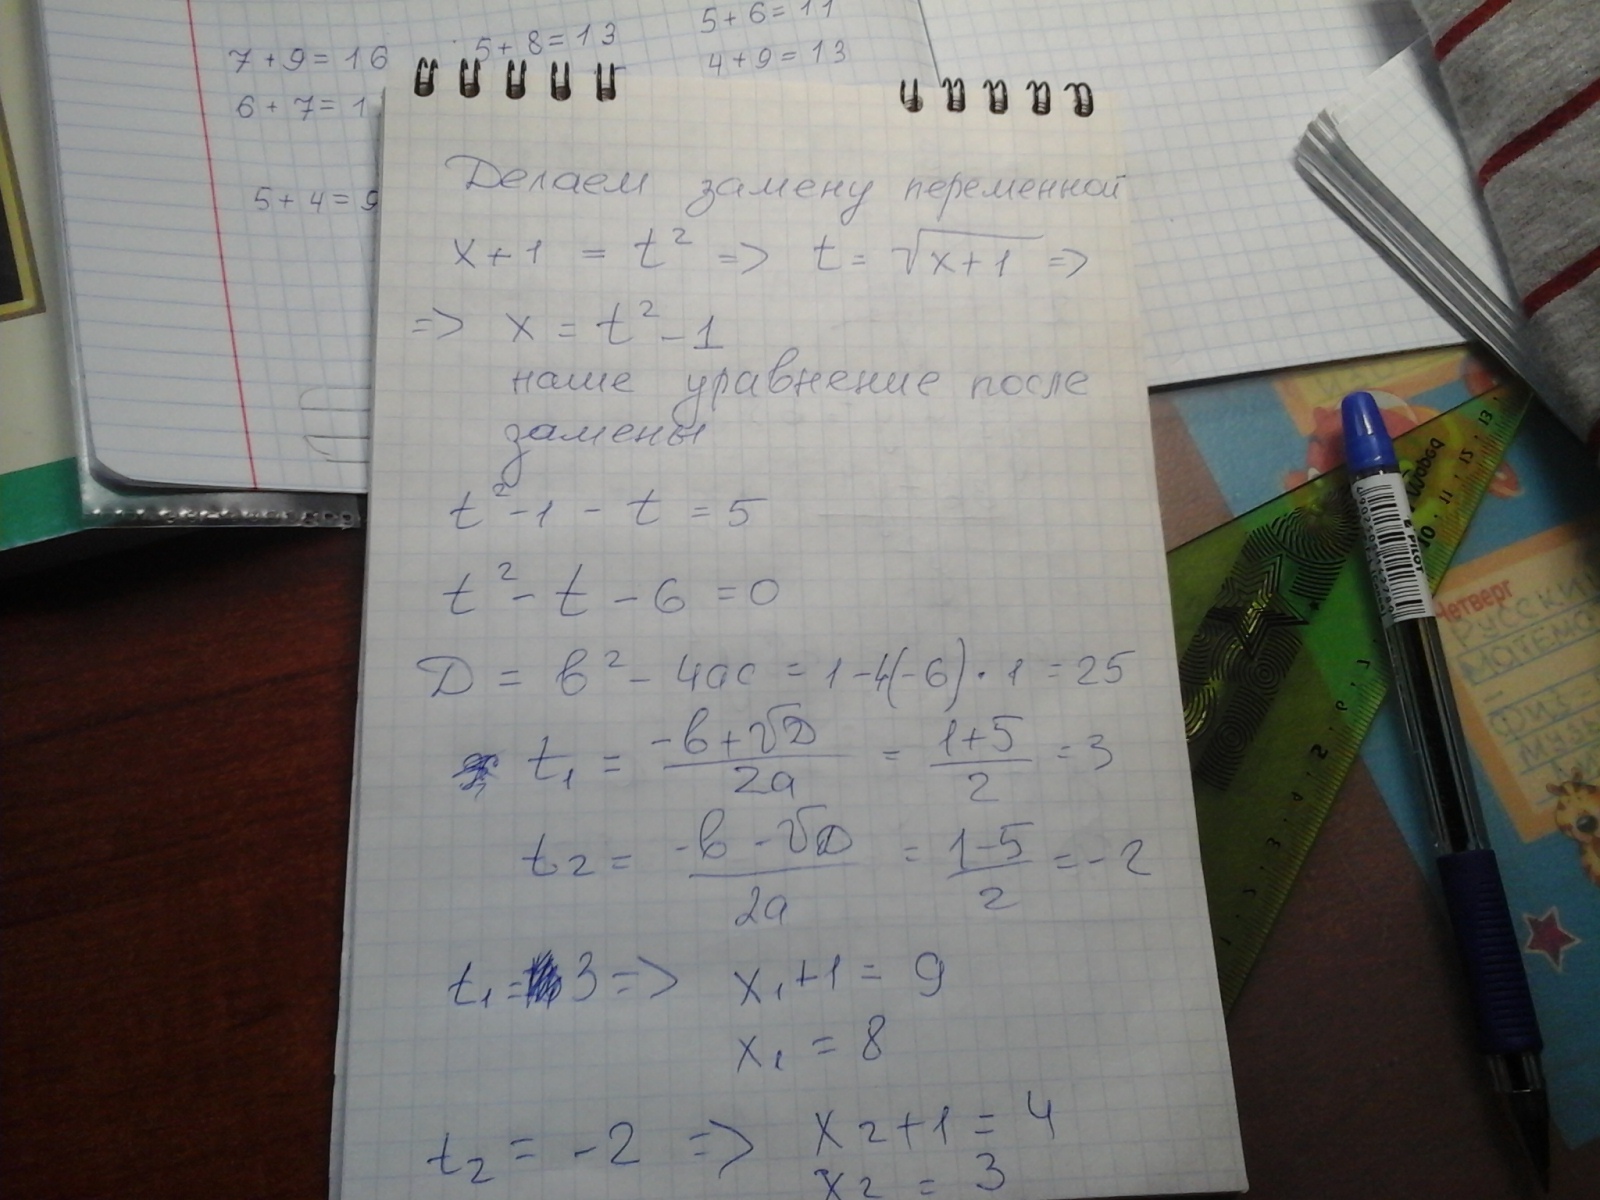 7 + 9 = 16
5 + 8 = 13
5 + 6 = 11
4 + 9 = 13
6 + 7 = 1
5 + 4 = 9
Делаем замену переменной
x + 1 = t² => t = √(x+1) =>
=> x = t² - 1
наше уравнение после
замены
t² - 1 - t = 5
t² - t - 6 = 0
D = b² - 4ac = 1 - 4(-6) · 1 = 25
t₁ = (-b + √D)/2a = (1+5)/2 = 3
t₂ = (-b - √D)/2a = (1-5)/2 = -2
t₁ = 3 => x₁ + 1 = 9
x₁ = 8
t₂ = -2 => x₂ + 1 = 4
x₂ = 3
PILOT
Четверг
РУССКИ
МАТЕМА
ФИЗ-
МУЗЫ